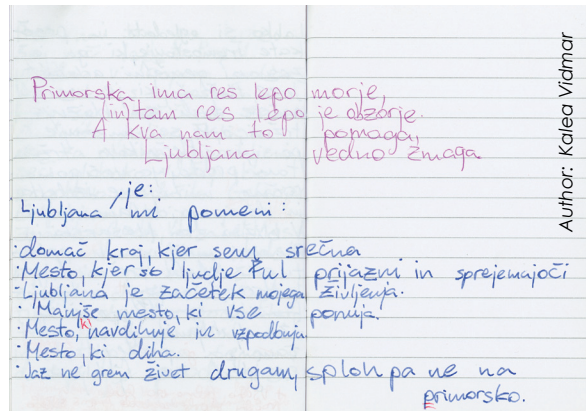 Primorska ima res lepo morje,
(in) tam res lepo je obzorje.
A kva nam to pomaga,
Ljubljana vedno zmaga
je:
Ljubljana / mi pomeni:
• domač kraj, kjer sem srečna
• Mesto, kjer so ljudje ful prijazni in sprejemajoči
• Ljubljana je začetek mojega življenja.
• Manjše mesto, ki vse ponuja.
• Mesto, ki navdihuje in vzpodbuja
• Mesto, ki diha.
• Jaz ne grem živet drugam, sploh pa ne na
primorsko.
Author: Kalea Vidmar